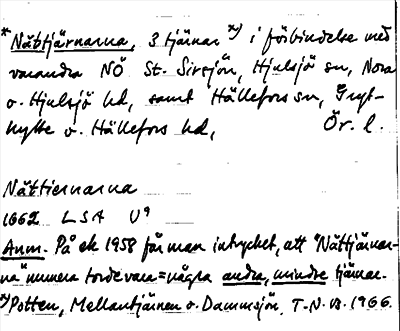 * Nättjärnarna, 3 tjärnar x) i förbindelse med
varandra NÖ St. Sirsjön, Hjulsjö sn, Nora
o. Hjulsjö hd, samt Hällefors sn, Gryt-
hytte o. Hällefors hd, Ör. l.
Nättiernarna
1662 LSA U⁹
Anm. På ek 1958 får man intrycket, att "Nättjärnar-
na" numera torde vara = några andra, mindre tjärnar.
x) Potten, Mellantjärnen o. Dammsjön. T.N. VB. 1966.